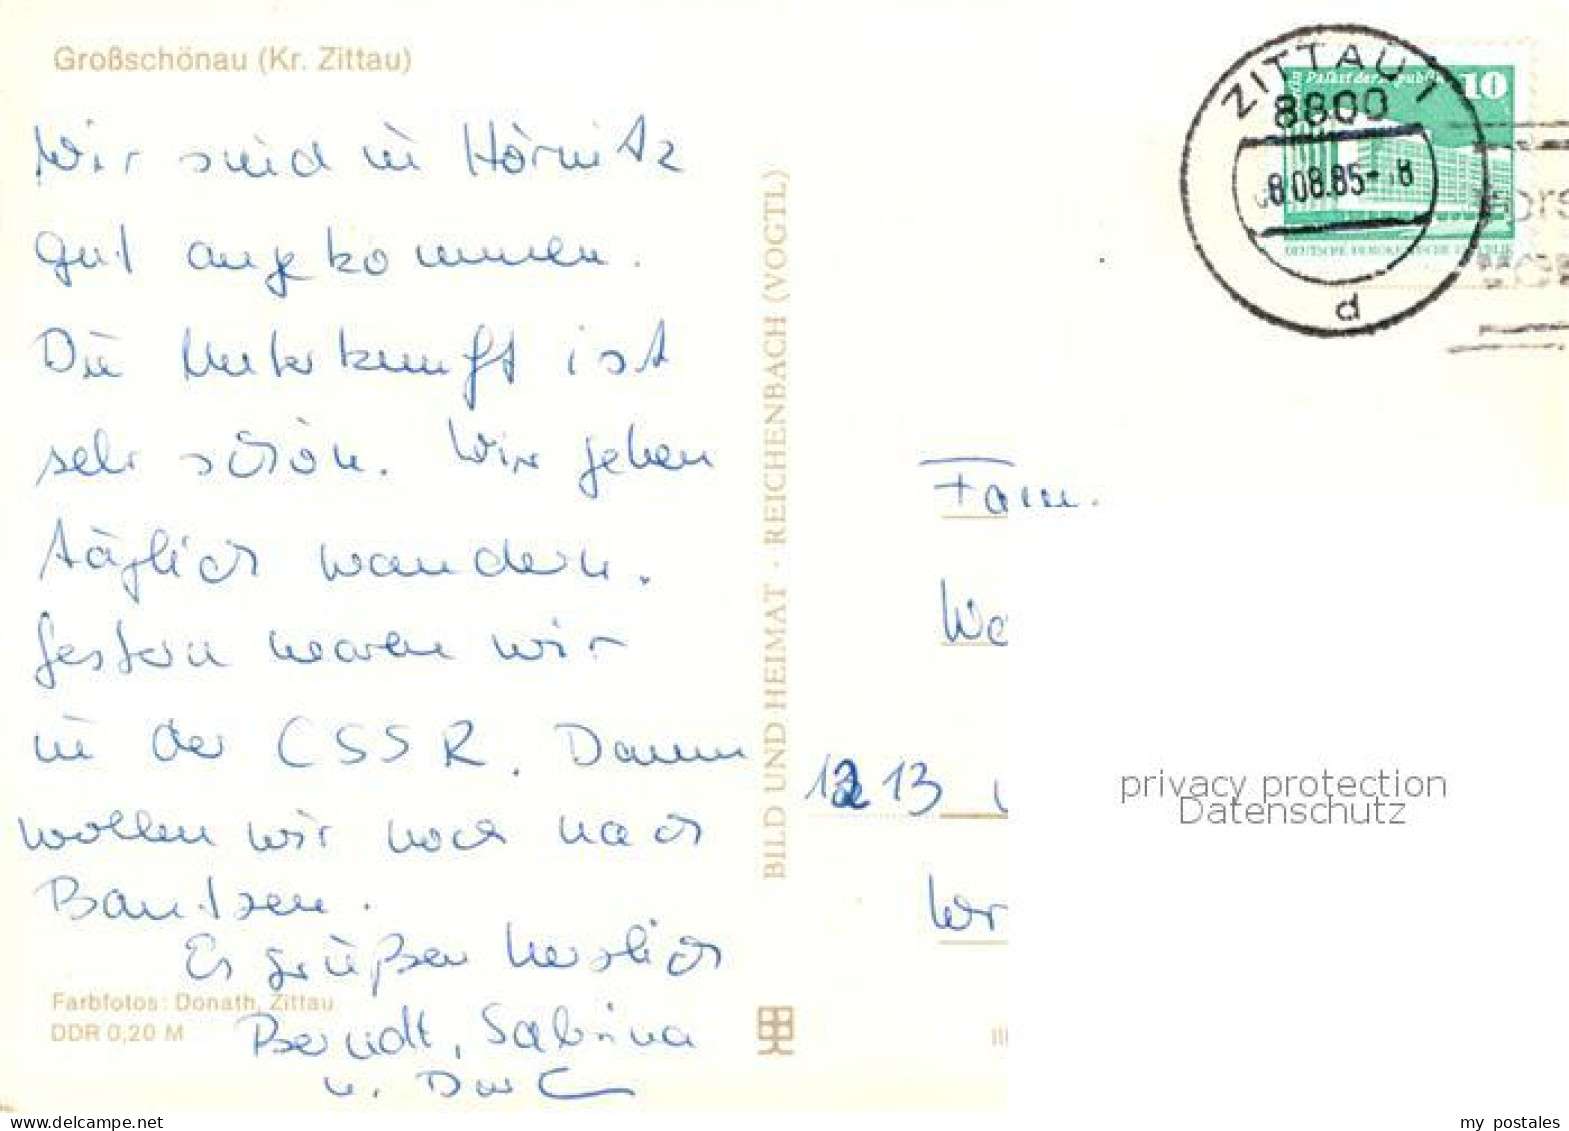 Großschönau (Kr. Zittau)
Wir sind in Hörnitz
gut angekommen.
Die Unterkunft ist
sehr schön. Wir gehen
täglich wandern.
Gestern waren wir
in der CSSR. Dann
wollen wir noch nach
Bautzen.
Es grüßen herzlich
Berndt, Sabrina
u.
Farbfotos: Donath, Zittau
DDR 0,20 M
BILD UND HEIMAT · REICHENBACH (VOGTL)
ZITTAU 1
8800
8.08.85
d
Palast der Republik
10
Fam.
13
privacy protection
Datenschutz
www.delcampe.net
my_postales